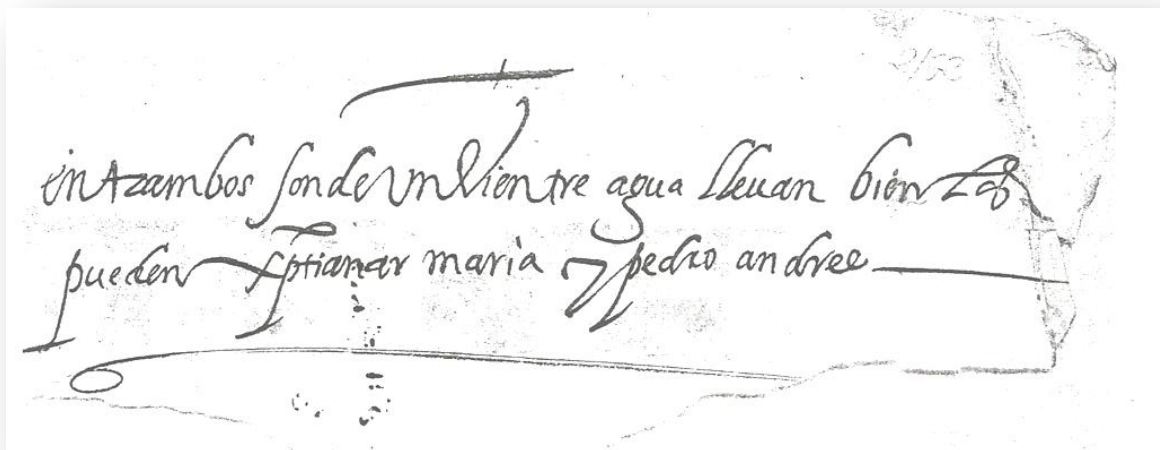 entrambos son de un Vientre agua lleuan bien los
pueden xptianar maria y pedro andres